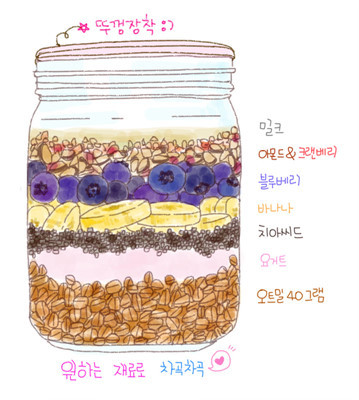 뚜껑장착 :)
밀크
아몬드&크랜베리
블루베리
바나나
치아씨드
요거트
오트밀 40그램
원하는 재료로 차곡차곡